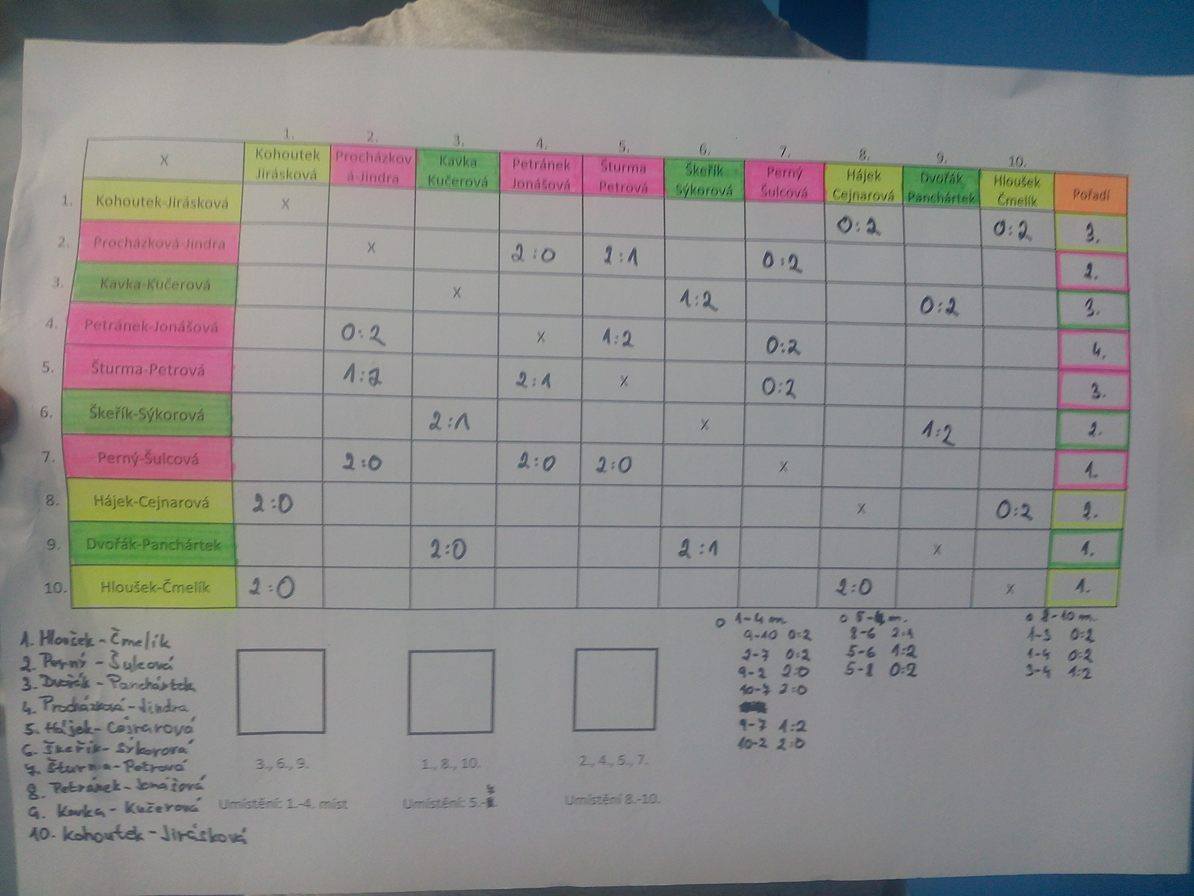 1. 2. 3. 4. 5. 6. 7. 8. 9. 10.
X Kohoutek Jirásková Procházkov á-Jindra Kavka Kučerová Petránek Jonášová Šturma Petrová Škeřík Sýkorová Perný Šulcová Hájek Cejnarová Dvořák Panchártek Hloušek Čmelík Pořadí
1. Kohoutek-Jirásková X 0:2 0:2 3.
2. Procházková-Jindra X 2:0 2:1 0:2 2.
3. Kavka-Kučerová X 1:2 0:2 3.
4. Petránek-Jonášová 0:2 X 1:2 0:2 4.
5. Šturma-Petrová 1:2 2:1 X 0:2 3.
6. Škeřík-Sýkorová 2:1 X 1:2 2.
7. Perný-Šulcová 2:0 2:0 2:0 X 1.
8. Hájek-Cejnarová 2:0 X 0:2 2.
9. Dvořák-Panchártek 2:0 2:1 X 1.
10. Hloušek-Čmelík 2:0 2:0 X 1.
1. Hloušek-Čmelík
2. Perný-Šulcová
3. Dvořák-Panchártek
4. Procházková-Jindra
5. Hájek-
6. Škeřík-Sýkorová
7. Šturma-Petrová
8. Petránek-Jonášová
9. Kavka-Kučerová
10. Kohoutek-Jirásková
3., 6., 9.
Umístění: 1.-4. míst
1., 8., 10.
Umístění: 5.-
2., 4., 5., 7.
Umístění 8.-10.
1-4 m.
9-10 0:2
2-7 0:2
9-2 2:0
10-7 2:0
9-7 1:2
10-2 2:0
8-6 2:1
5-6 1:2
5-8 0:2
8-10 m.
1-3 0:2
1-4 0:2
3-4 1:2